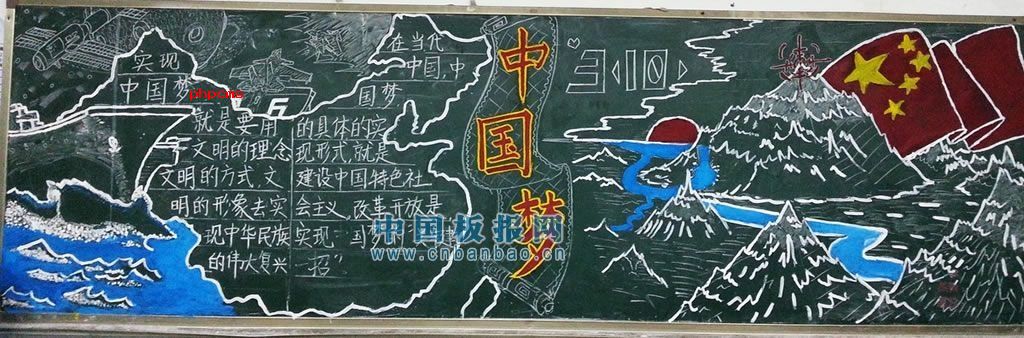 实现
中国梦
phpone
就是要用
文明的理念
文明的方式,文
明的形象去实
现中华民族
的伟大复兴
在当代
中国,中
国梦
的具体的实
现形式就是
建设中国特色社
会主义,改革开放是
实现
一招”
中国梦
310
中国板报网
www.cnbanbao.cn